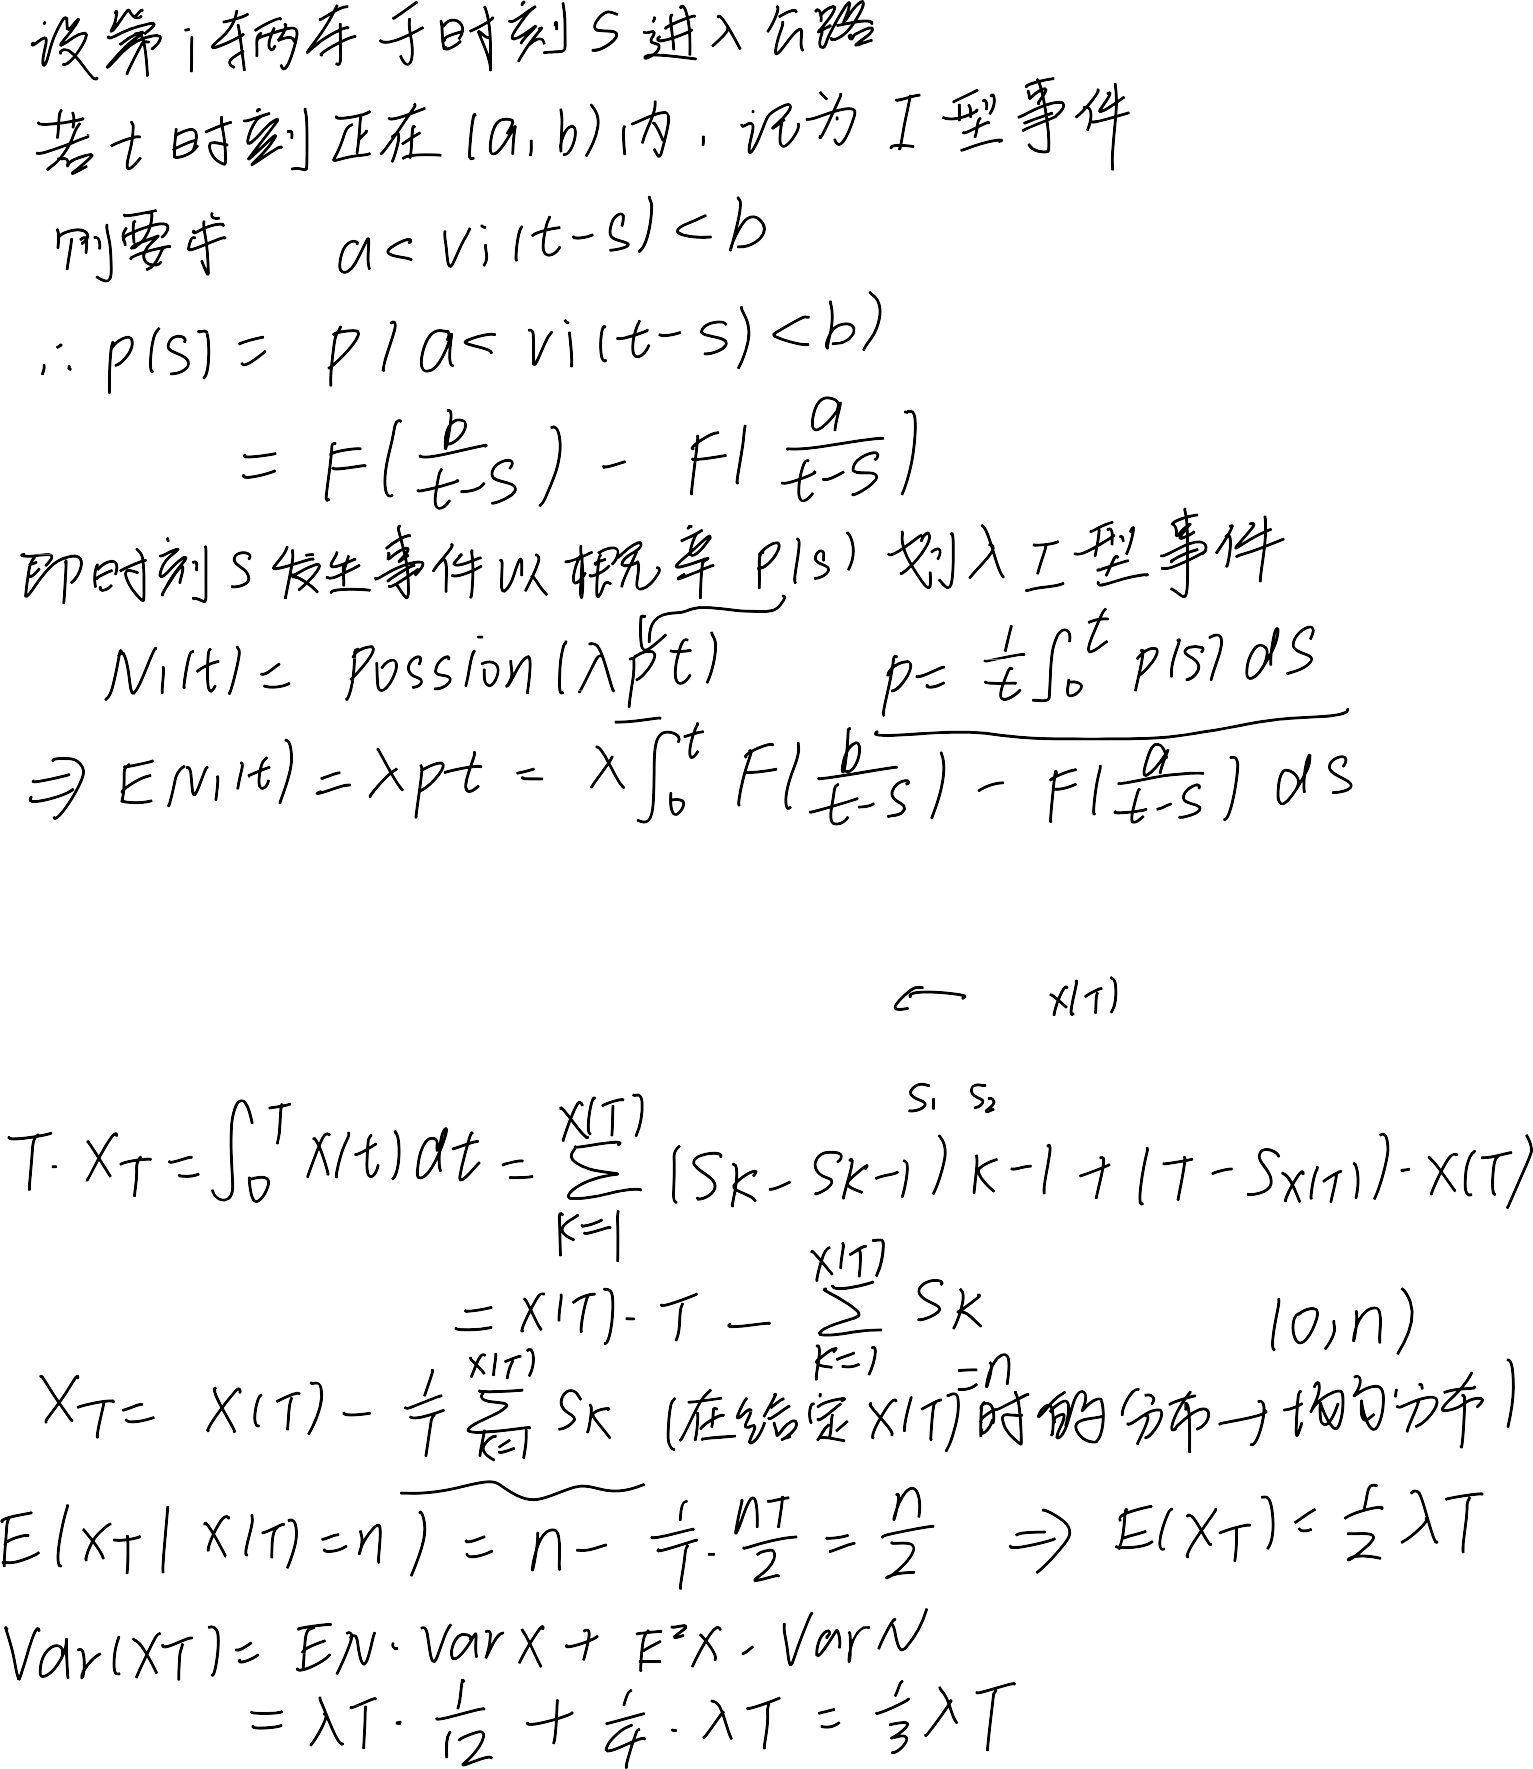 设第i辆车于时刻S进入公路
若t时刻正在(a,b)内,记为I型事件
则要求 a<Vi(t-s)<b
∴ P(S) = P(a<Vi(t-s)<b)
= F(b/(t-s)) - F(a/(t-s))
即时刻S发生事件以概率P(s)划入I型事件
N₁(t) = Possion(λpt) p = 1/t ∫₀ᵗ P(s) ds
⇒ E N₁(t) = λpt = λ∫₀ᵗ F(b/(t-s)) - F(a/(t-s)) ds
← X(T)
S₁ S₂
T·X_T = ∫₀ᵀ X(t)dt = Σ_{K=1}^{X(T)} (S_K - S_{K-1}) K-1 + (T - S_{X(T)})·X(T)
= X(T)·T - Σ_{K=1}^{X(T)} S_K (0,n)
X_T = X(T) - 1/T Σ_{K=1}^{X(T)} S_K (在给定X(T)=n时的分布→均匀分布)
E(X_T | X(T)=n) = n - 1/T · nT/2 = n/2 ⇒ E(X_T) = 1/2 λT
Var(X_T) = EN·VarX + E²X·VarN
= λT · 1/12 + 1/4 · λT = 1/3 λT